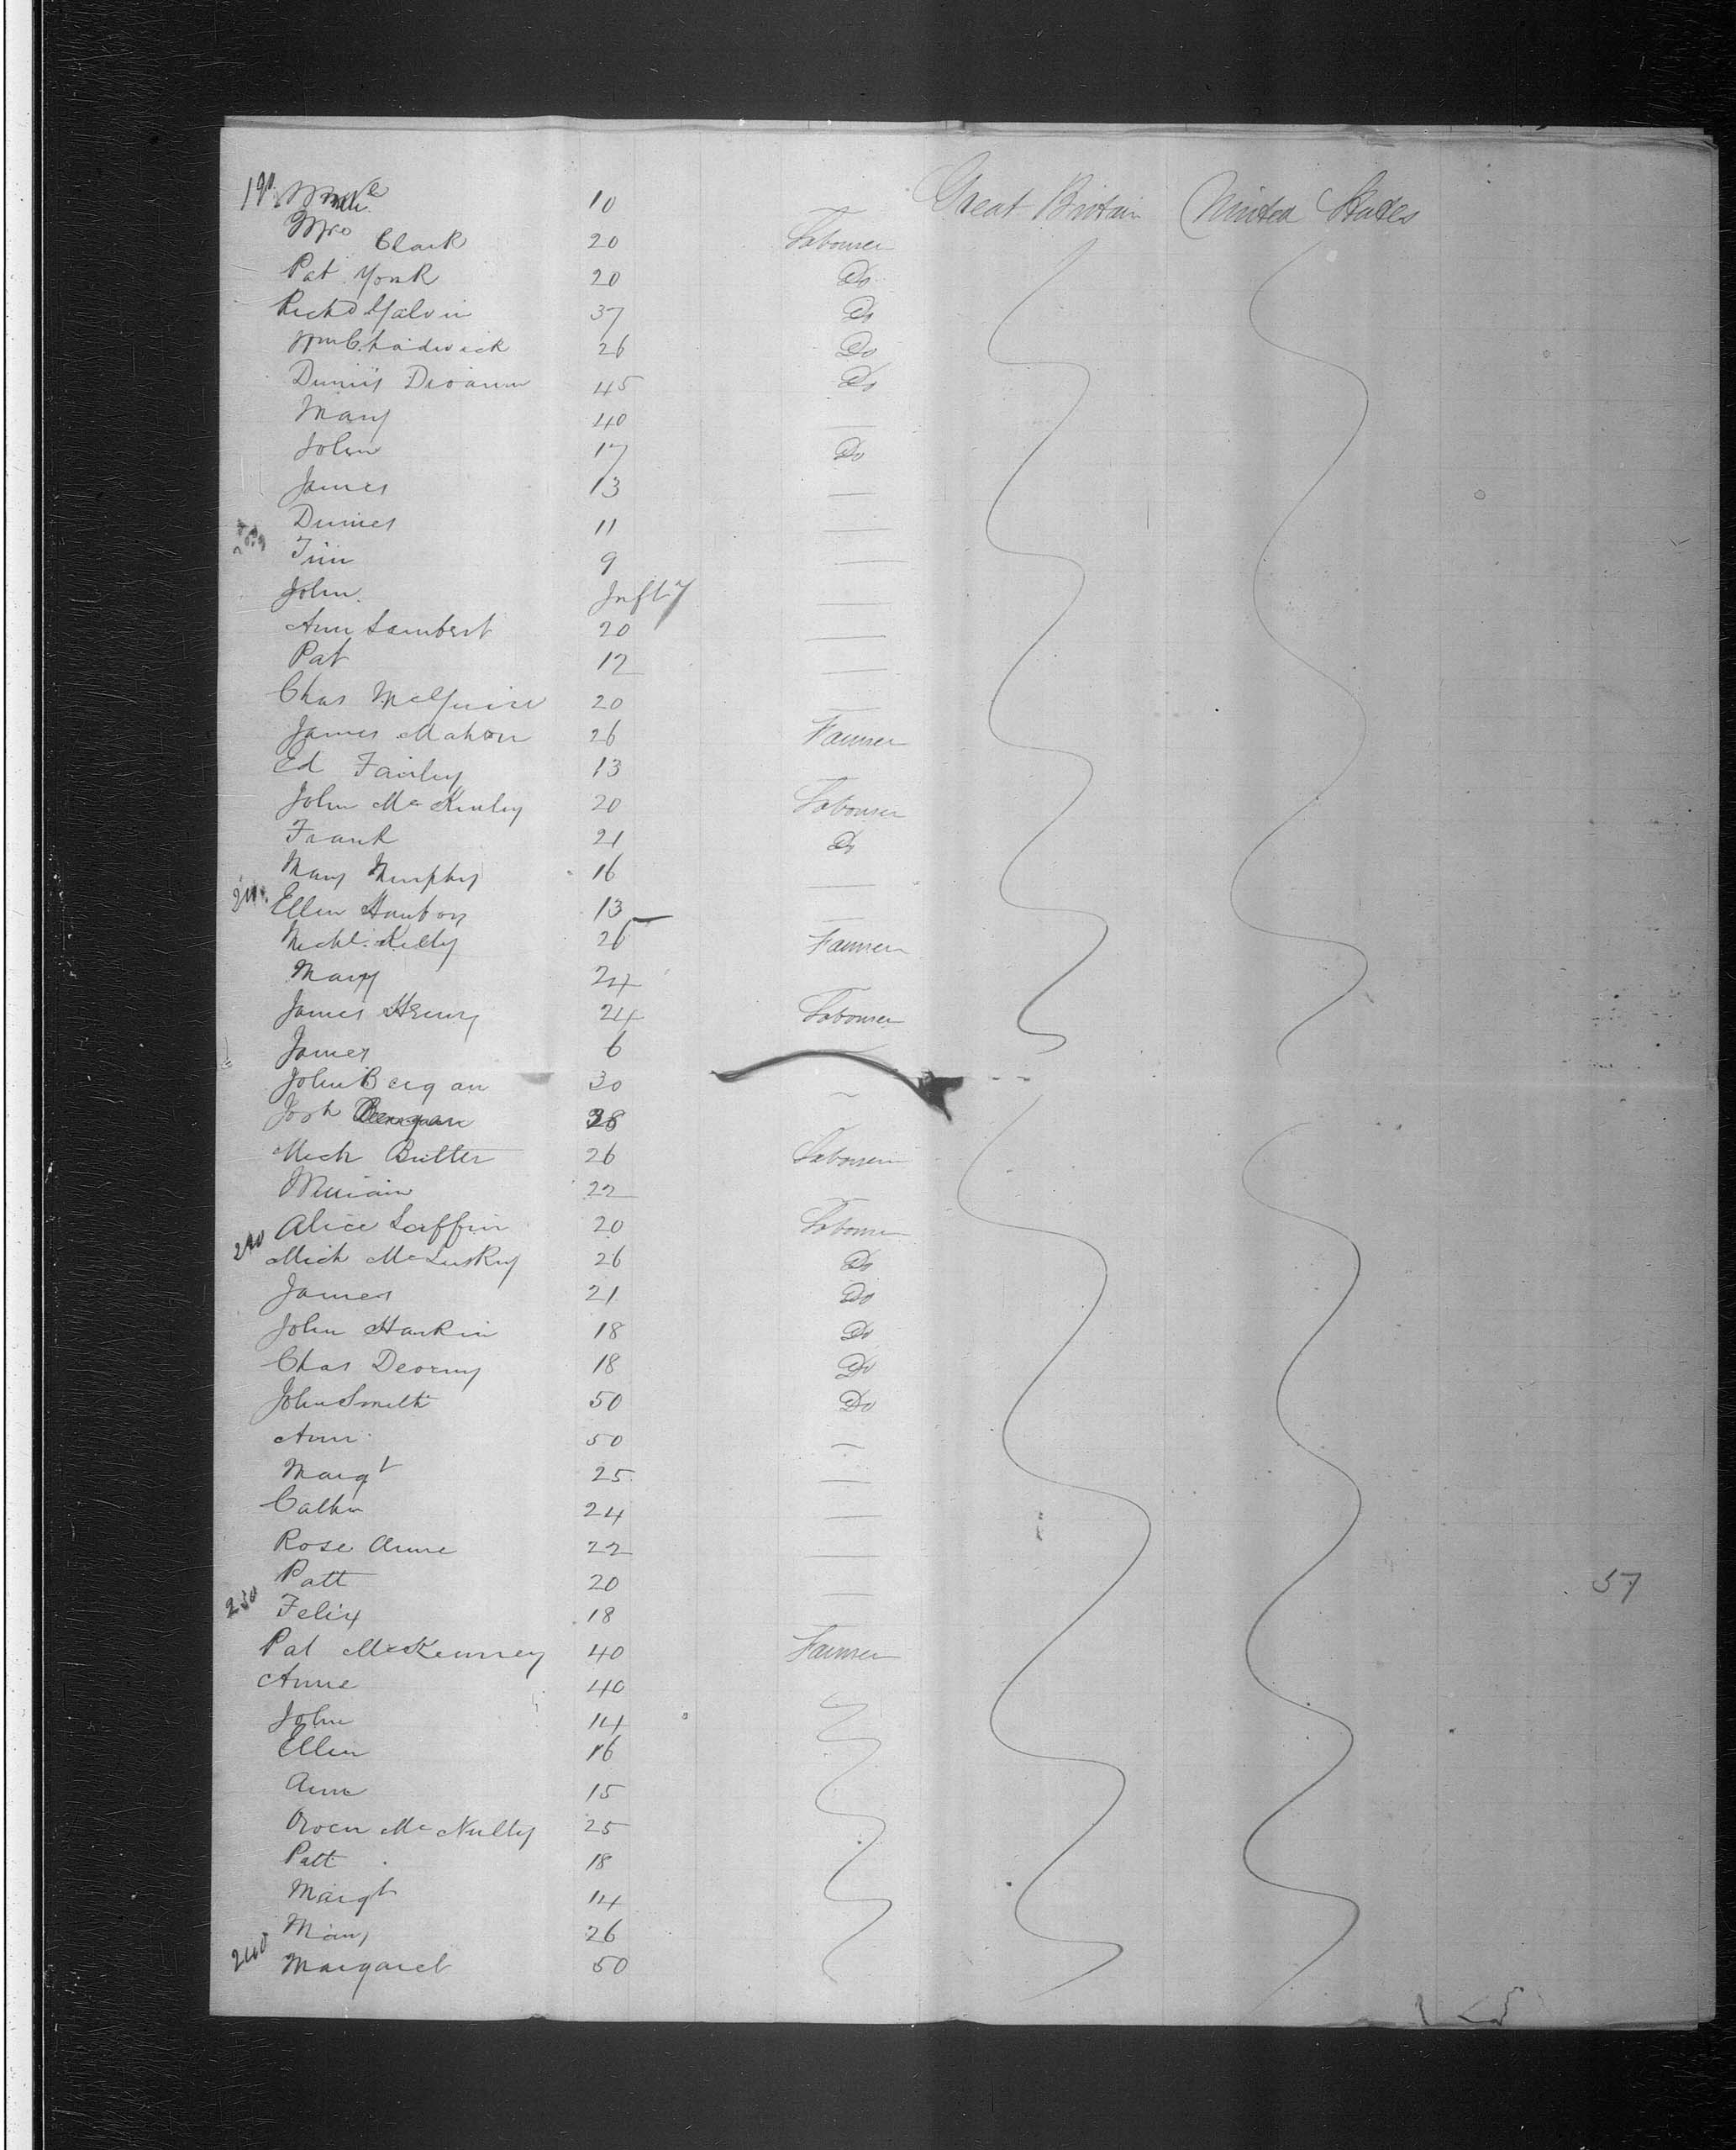 190 10 Great Britain United States
Mrs Clark 20 Labourer
Pat York 20 Do
Richd Galvin 37 Do
Wm Chadwick 26 Do
Dennis 45 Do
Mary 40 —
John 17 Do
James 13 —
Dennis 11 —
Tim 9 —
John Inft —
Ann Lambert 20 —
Pat 12 —
Chas McGuire 20 —
James Mahon 26 Farmer
Ed Fairley 13
John Mc Kinley 20 Labourer
Frank 21 Do
Mary Murphy 16 —
210 Ellen 13 —
Michl. Kelly 26 Farmer
Mary 24
James Henry 24 Labourer
James 6
John Bergan 30
Josh 28
Mich Butler 26 Labourer
22 —
Alice Laffin 20 Labourer
Mich Mc Luskey 26 Do
James 21 Do
John Harkin 18 Do
Chas 18 Do
John Smith 50 Do
Ann 50 —
Margt 25 —
Cathn 24 —
Rose Anne 22 —
Patt 20 — 57
230 Felix 18
Pat McKenney 40 Farmer
Anne 40
John 14
Ellen 16
Ann 15
Owen Mc Nulty 25
Patt 18
Margt 14
Mary 26
240 Margaret 50